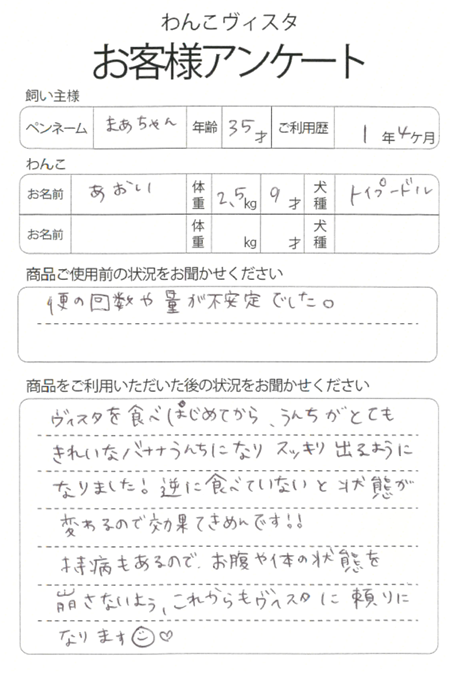 わんこヴィスタ
お客様アンケート
飼い主様
ペンネーム まあちゃん 年齢 35才 ご利用歴 1年4ケ月
わんこ
お名前 あおい 体重 2.5kg 9才 犬種 トイプードル
お名前 体重 kg 才 犬種
商品ご使用前の状況をお聞かせください
便の回数や量が不安定でした。
商品をご利用いただいた後の状況をお聞かせください
ヴィスタを食べはじめてから、うんちがとても
きれいなバナナうんちになり スッキリ出るように
なりました!逆に食べていないと状態が
変わるので効果てきめんです!!
持病もあるので、お腹や体の状態を
崩さないよう、これからもヴィスタに頼りに
なります☺♡